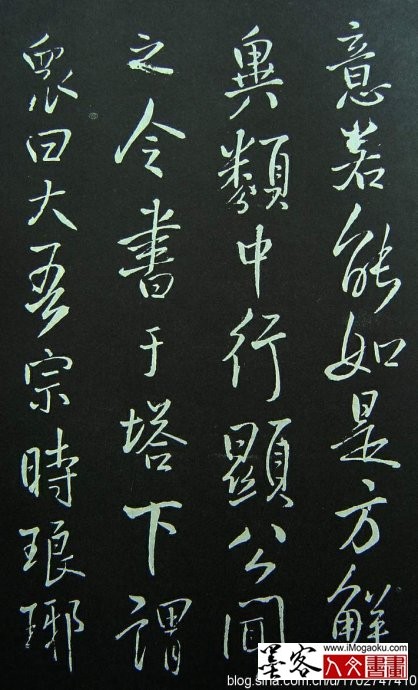 意若能如是方解
異類中行顯公聞
之令書于塔下謂
眾曰大吾宗時琅琊
墨客
www.iMogaoku.com
人文書畫
blog.sina.com.cn/u/1702747410